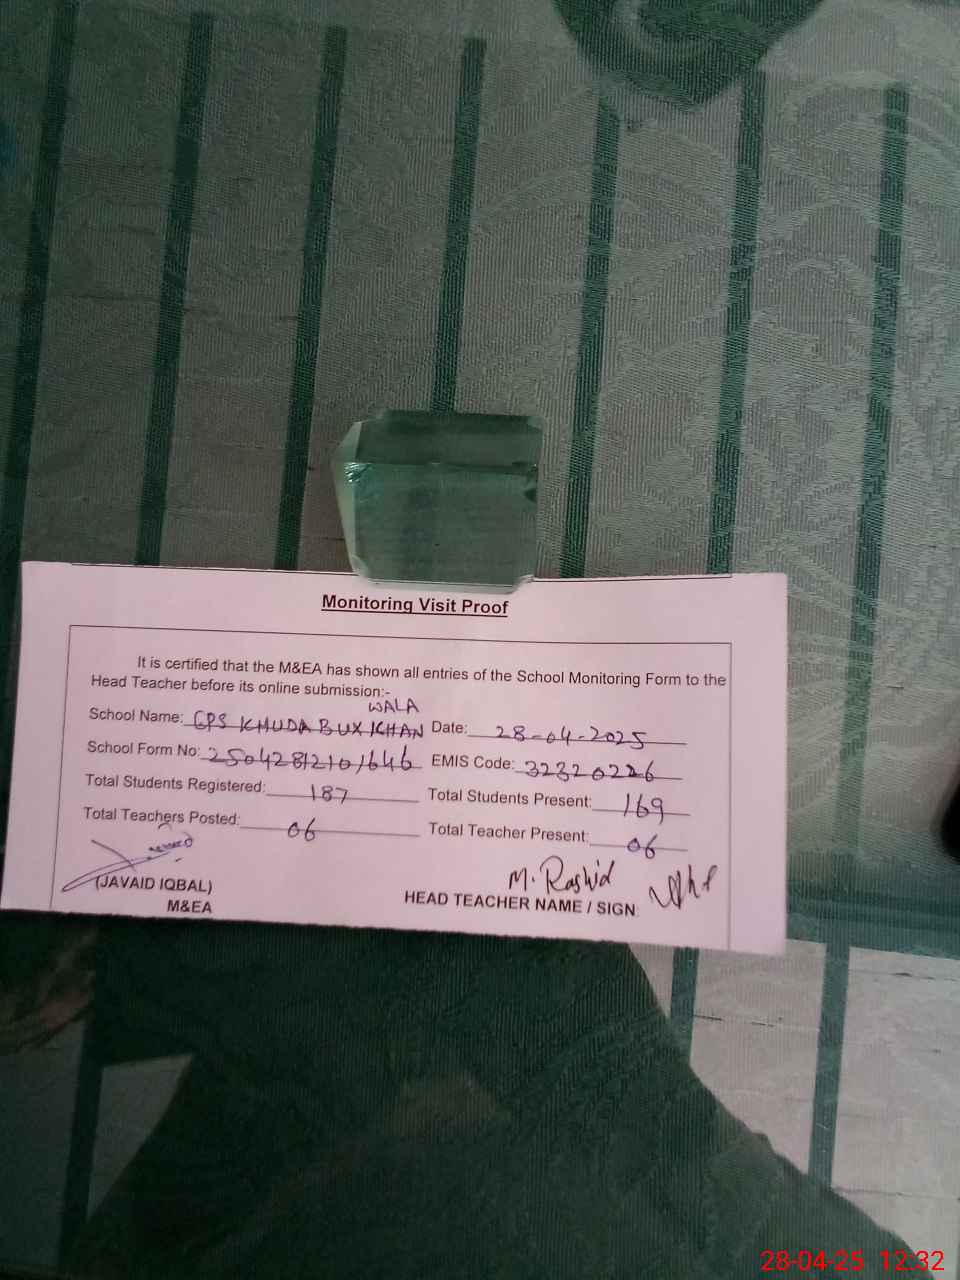 Monitoring Visit Proof
It is certified that the M&EA has shown all entries of the School Monitoring Form to the
Head Teacher before its online submission:-
WALA
School Name: GPS KHUDA BUX KHAN Date: 28-04-2025
School Form No: 25042812101646 EMIS Code: 32320226
Total Students Registered: 187 Total Students Present: 169
Total Teachers Posted: 06 Total Teacher Present: 06
M. Rashid
(JAVAID IQBAL) HEAD TEACHER NAME / SIGN:
M&EA
28-04-25 12:32